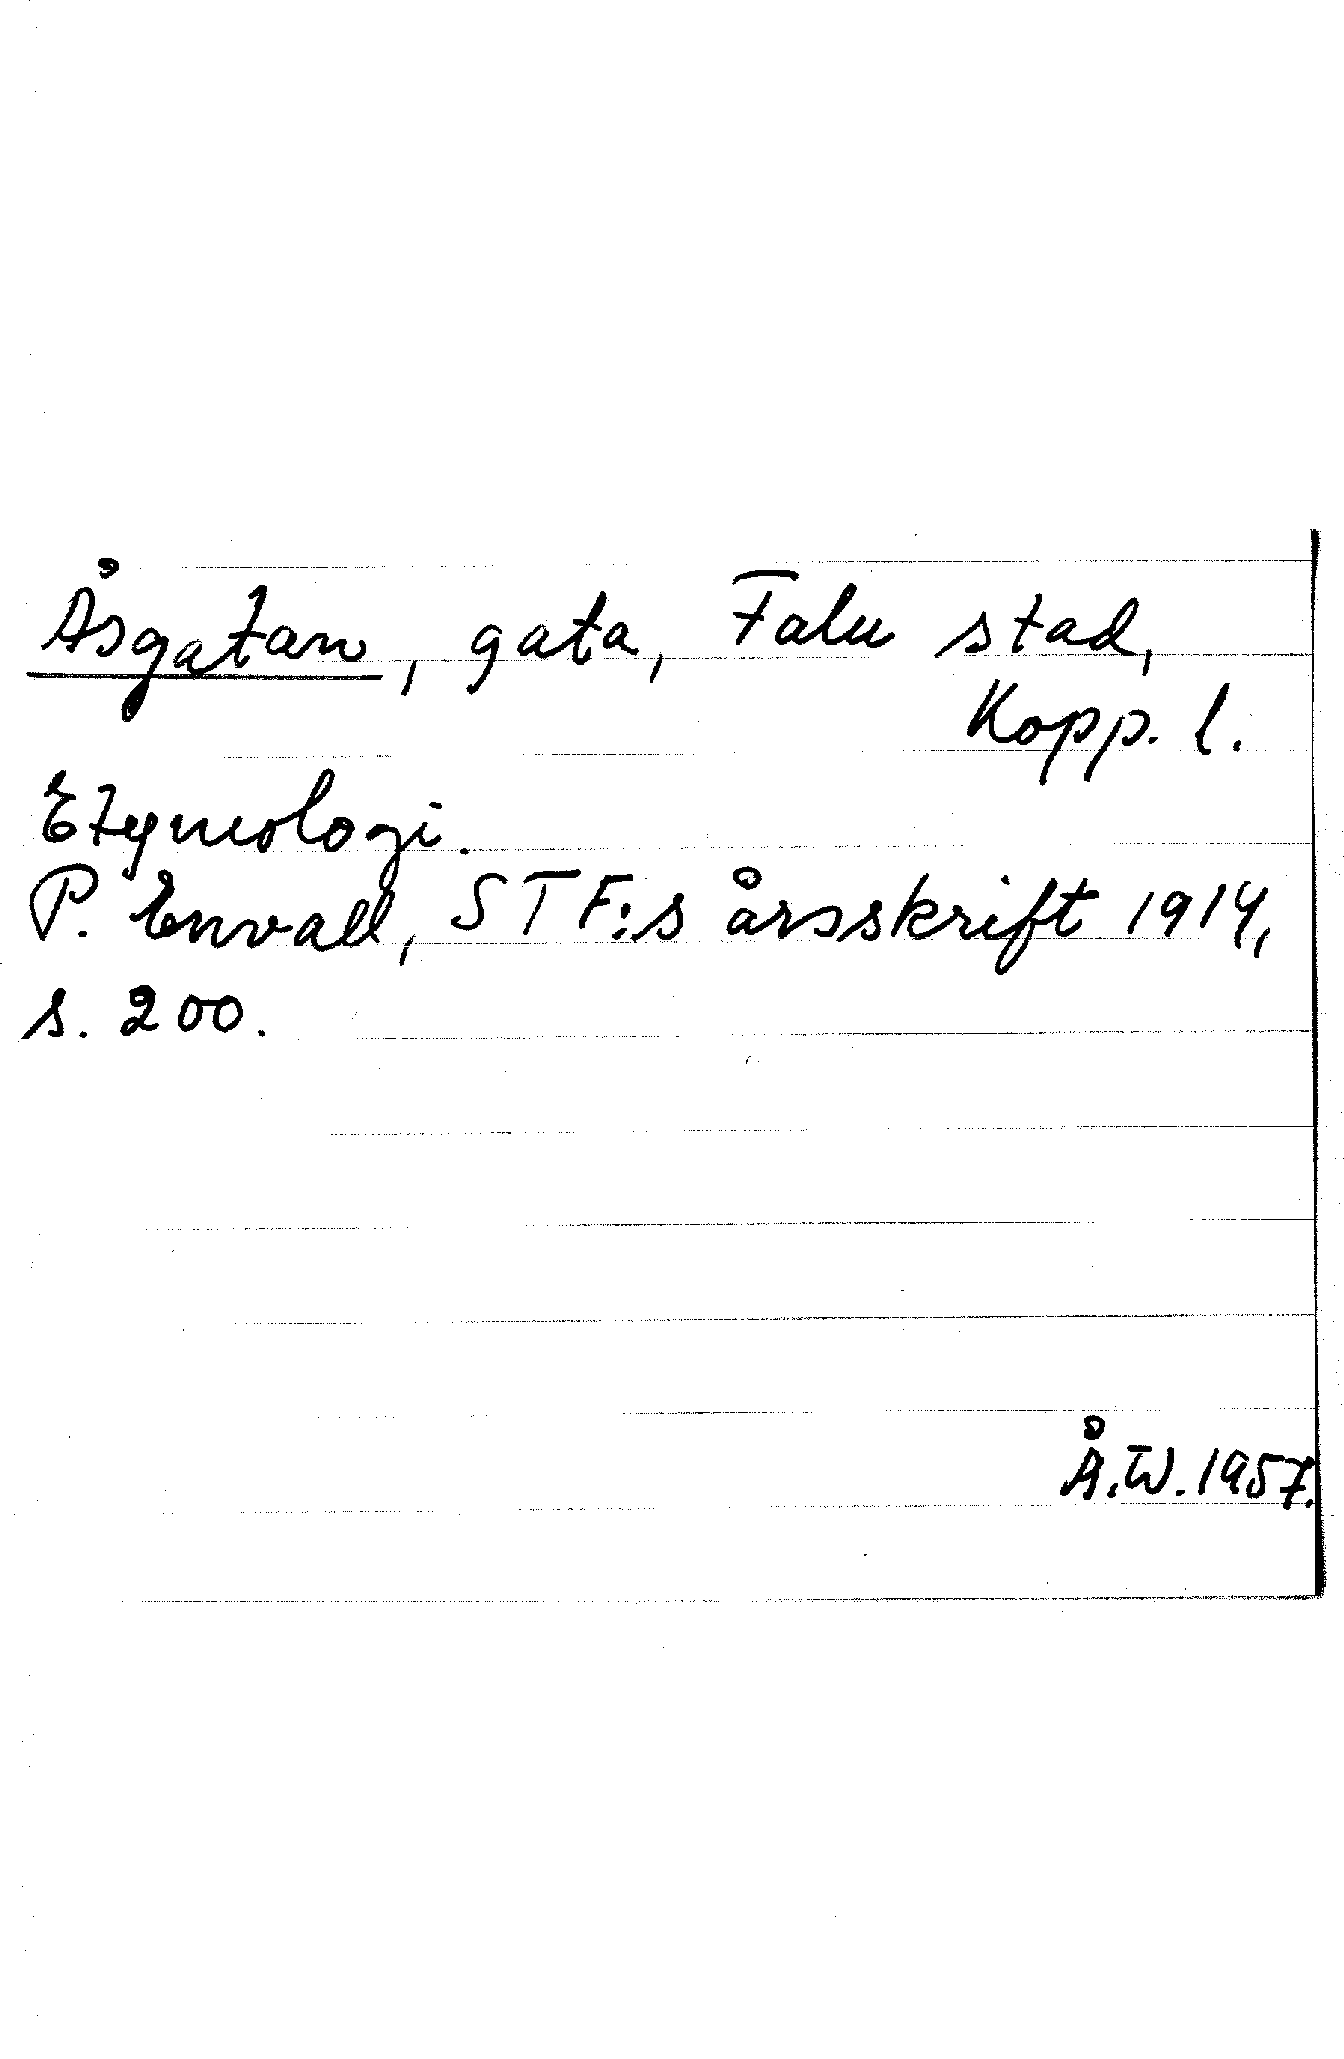 Åsgatan, gata, Falu stad,
Kopp. l.
Etymologi.
P. Envall, STF:s årsskrift 1914,
s. 200.
Å.W. 1957.